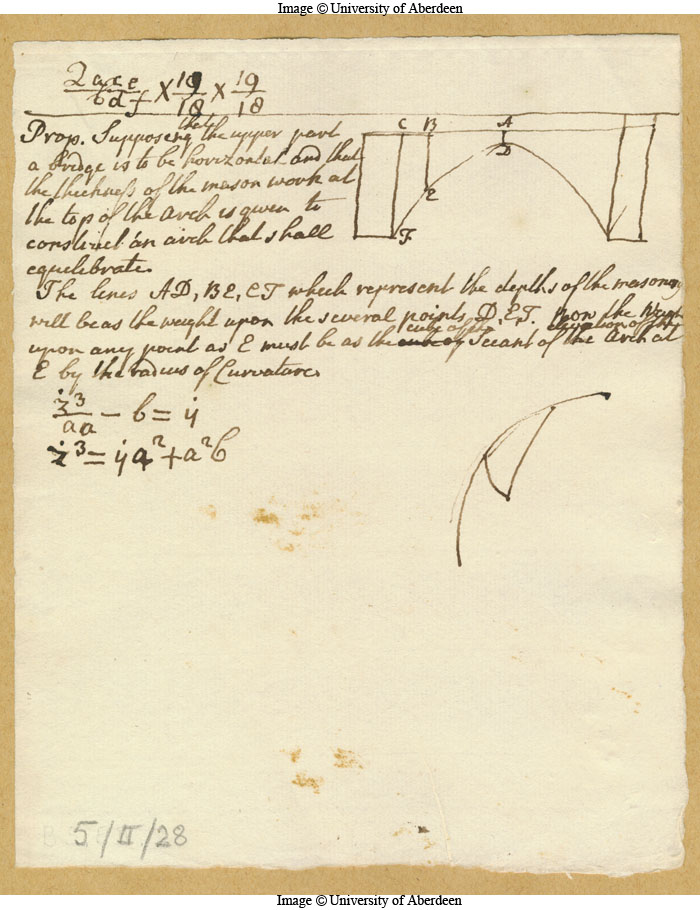 Image © University of Aberdeen
2ace/bdf × 19/18 × 19/18
C B A
D
E
F
Prop. Supposeing that the upper part
a bridge is to be horizontal and that
the thickness of the mason work at
the top of the Arch is given to
construct an arch that shall
equelibrate.
The lines AD, BE, CF which represent the depths of the masonry
will be as the weight upon the several points D, E, F. Now the Weight
upon any point as E must be as the cube of the Secant of the elevation of the Arch at
E by the radius of Curvature.
ż³/aa − b = ÿ
ż³ = ÿa² + a²b
5/II/28
Image © University of Aberdeen